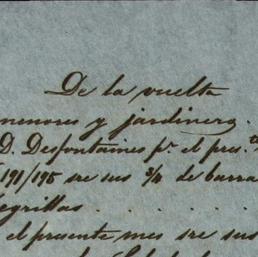 De la vuelta
menores y jardinero.
D. Desfontaines pr. el pres.te
191/195 sre sus 3/4 de barra
negrillas . . . .
el presente mes sre sus